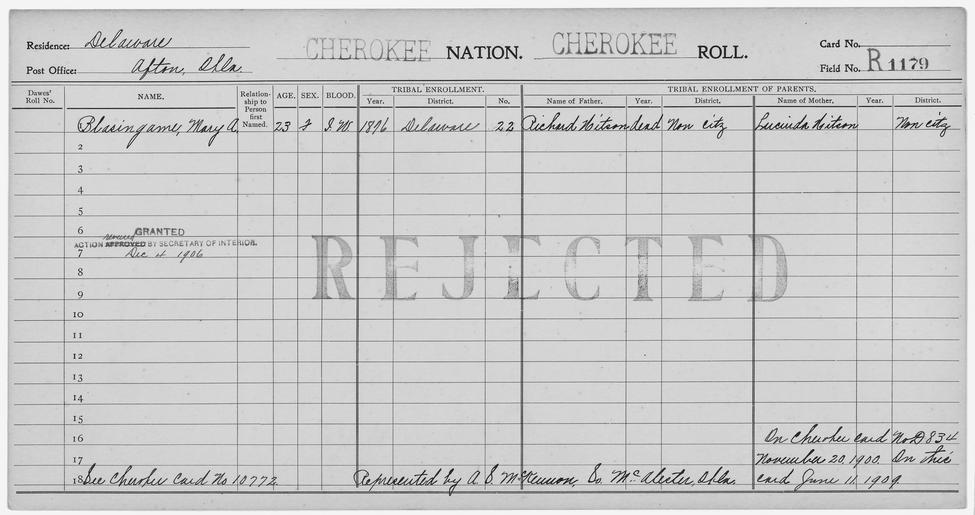 Residence: Delaware
CHEROKEE NATION. CHEROKEE ROLL.
Card No.
Post Office: Afton, Okla.
Field No. R 1179
Dawes' Roll No.
NAME.
Relationship to Person first Named.
AGE. SEX. BLOOD.
TRIBAL ENROLLMENT.
Year. District. No.
TRIBAL ENROLLMENT OF PARENTS.
Name of Father. Year. District. Name of Mother. Year. District.
Blasingame, Mary A. 23 F I.W. 1896 Delaware 22 Richard Hitson dead Non citz Lucinda Hitson Non citz
2
3
4
5
6 GRANTED
ACTION APPROVED reversed BY SECRETARY OF INTERIOR.
7 Dec 4 1906
REJECTED
8
9
10
11
12
13
14
15
16 On Cherokee card No D834
17 November 20, 1900. On this
18 See Cherokee Card No 10772 Represented by A. S. McKennon, So. McAlester, Okla. card June 11, 1909.